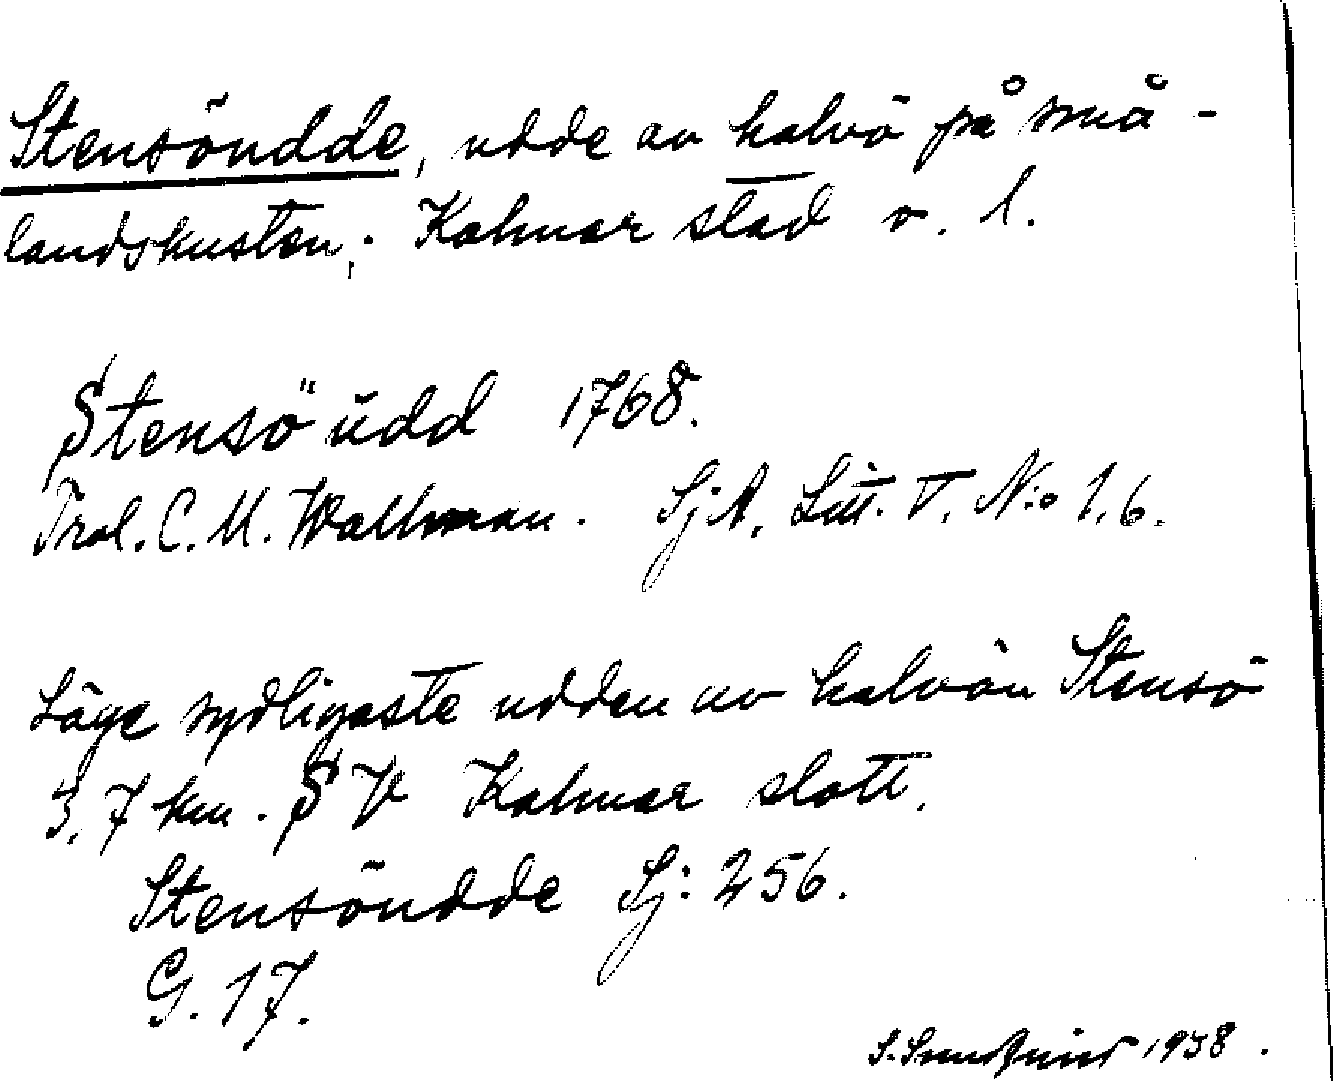 Stensöudde, udde av halvö på små-
landskusten; Kalmar stad v. l.
Stensö udd 1768.
Trol. C. M. Wallman. Sj A. Litt. V. N:o 1.6.
Läge sydligaste udden av halvön Stensö
3,7 km. SV Kalmar slott.
Stensöudde Sj: 256.
G. 17.
S. 1938.